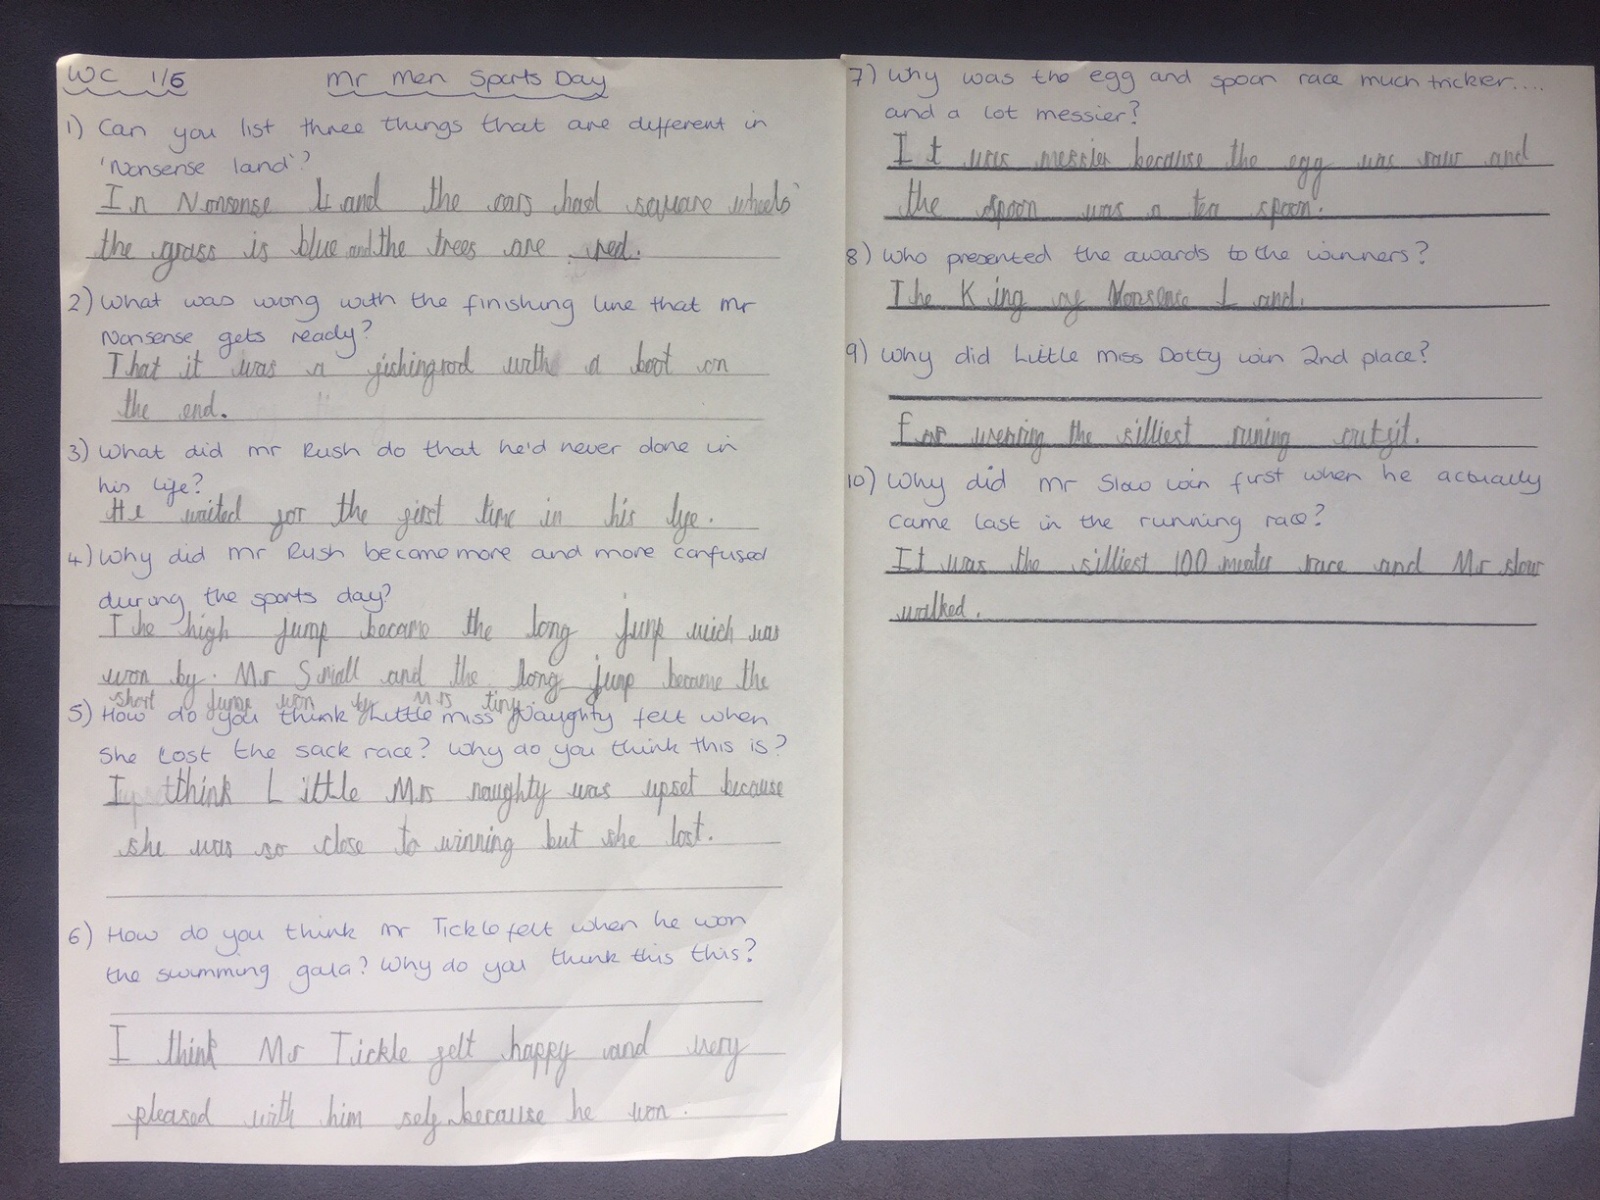 WC 1/6 Mr Men Sports Day
1) Can you list three things that are different in
'Nonsense land'?
In Nonsense Land the cars had square wheels
the grass is blue and the trees are red.
2) What was wrong with the finishing line that Mr
Nonsense gets ready?
That it was a fishingrod with a boot on
the end.
3) What did Mr Rush do that he'd never done in
his life?
He waited for the first time in his lye.
4) Why did Mr Rush become more and more confused
during the sports day?
The high jump became the long junp wich was
won by. Mr Small and the long junp became the
short jump won by Mrs tiny.
5) How do you think Little miss Naughty felt when
she lost the sack race? Why do you think this is?
I think Little Mrs naughty was upset because
she was so close to winning but she lost.
6) How do you think Mr Tickle felt when he won
the swimming gala? Why do you think this this?
I think Mr Tickle felt happy and very
pleased with him self because he won.
7) Why was the egg and spoon race much trickier....
and a lot messier?
It was messier because the egg was raw and
the spoon was a tea spoon.
8) Who presented the awards to the winners?
The King of Nonsence Land.
9) Why did Little miss Dotty win 2nd place?
For wearing the silliest runing outfit.
10) Why did Mr Slow win first when he actually
came last in the running race?
It was the silliest 100 meater race and Mr slow
walked.